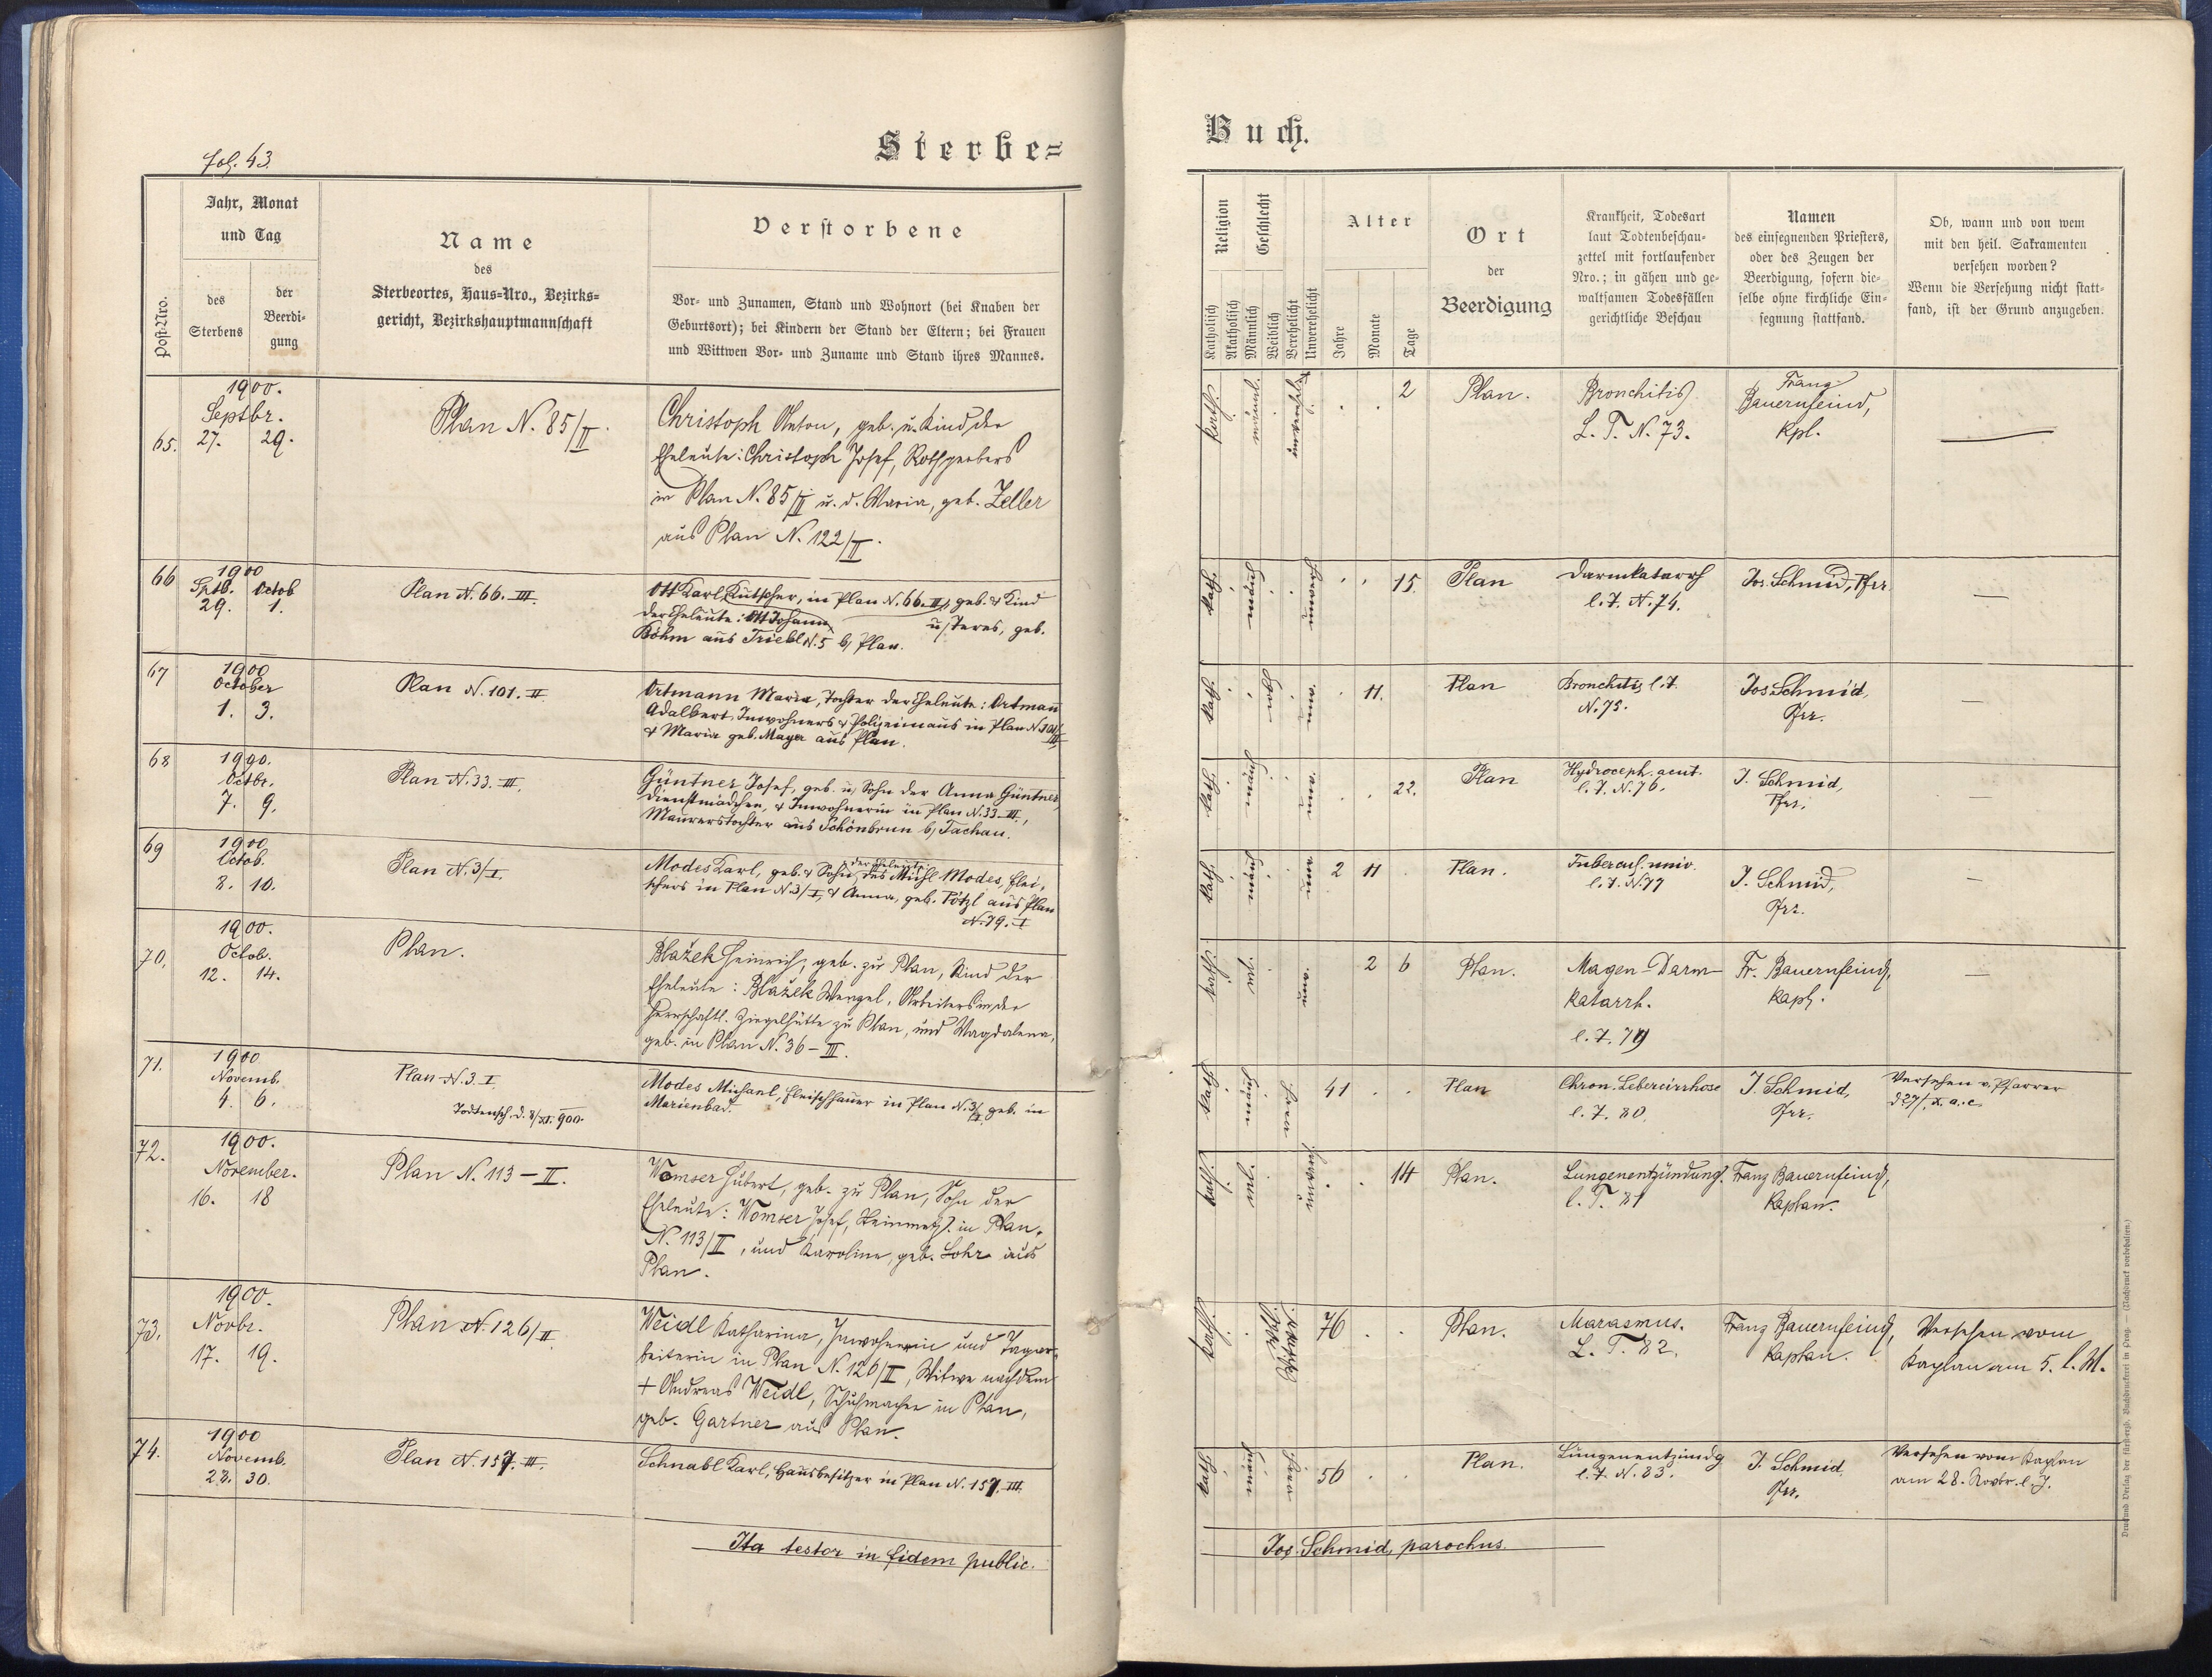 fol. 43.
Sterbe=
Post-Nro.
Jahr, Monat
und Tag
des
Sterbens
der
Beerdi-
gung
Name
des
Sterbeortes, Haus-Nro., Bezirks-
gericht, Bezirkshauptmannschaft
Verstorbene
Vor- und Zunamen, Stand und Wohnort (bei Knaben der
Geburtsort); bei Kindern der Stand der Eltern; bei Frauen
und Wittwen Vor- und Zuname und Stand ihres Mannes.
1900.
Septbr.
65. 27. 29.
Plan N. 85/II.
Christoph Anton, geb. u. Kind der
Eheleute: Christoph Josef, Rothgerbers
in Plan N. 85/II u. d. Maria, geb. Zeller
aus Plan N. 122/II.
66 1900
Sptb. Octob
29. 1.
Plan N. 66. III.
Ott Karl, Kutscher, in Plan N. 66. III, geb. & Kind
der Eheleute: Ott Johann u/ Teres, geb.
Böhm aus Triebl N. 5 b/ Plan.
67 1900
October
1. 3.
Plan N. 101. II
Ortmann Maria, Tochter der Eheleute: Ortmann
Adalbert, Inwohners & Polizeimanns in Plan N. 101/III
& Maria geb. Mayer aus Plan.
68 1900.
Octbr.
7. 9.
Plan N. 33. III.
Güntner Josef, geb. u. Sohn der Anna Güntner,
Dienstmädchen, & Inwohnerin in Plan N. 33. III.,
Maurerstochter aus Schönbrun b/ Tachau.
69 1900
Octob.
8. 10.
Plan N. 3/I.
der Eheleute
Modes Karl, geb. & Sohn des Michl Modes, Flei-
schers in Plan N. 3/I, & Anna, geb. Pötzl aus Plan
N. 79. I
1900.
70. Octob.
12. 14.
Plan.
Blažek Heinrich, geb. zu Plan, Kind der
Eheleute: Blažek Wenzel, Arbeiters in der
herrschaftl. Ziegelhütte zu Plan, und Magdalena,
geb. in Plan N. 36 – III.
71. 1900
Novemb.
4. 6.
Plan N. 3. I
Todtensch. d. 8/XI. 900.
Modes Michael, Fleischhauer in Plan N. 3/I, geb. in
Marienbad.
72. 1900.
November.
16. 18
Plan N. 113 – II.
Womser Hubert, geb. zu Plan, Sohn der
Eheleute: Womser Josef, Steinmetz. in Plan,
N. 113/II, und Karoline, geb. Lohr aus
Plan.
1900.
73. Novbr.
17. 19.
Plan N. 126/II.
Weidl Katharina, Inwohnerin und Tagar-
beiterin in Plan N. 126/II, Witwe nach dem
+ Andreas Weidl, Schuhmacher in Plan,
geb. Gartner aus Plan.
74. 1900
Novemb.
28. 30.
Plan N. 157. III.
Schnabl Karl, Hausbesitzer in Plan N. 157. III.
Ita testor in fidem public.
Buch.
Religion
Katholisch
Akatholisch
Geschlecht
Männlich
Weiblich
Verehelicht
Unverehelicht
Alter
Jahre
Monate
Tage
Ort
der
Beerdigung
Krankheit, Todesart
laut Todtenbeschau-
zettel mit fortlaufender
Nro.; in gähen und ge-
waltsamen Todesfällen
gerichtliche Beschau
Namen
des einsegnenden Priesters,
oder des Zeugen der
Beerdigung, sofern die-
selbe ohne kirchliche Ein-
segnung stattfand.
Ob, wann und von wem
mit den heil. Sakramenten
versehen worden?
Wenn die Versehung nicht statt-
fand, ist der Grund anzugeben.
kath. 2 Plan. Bronchitis Franz
L. T. N. 73. Bauernfeind,
Kpl.
kath. 15. Plan Darmkatarrh Jos. Schmid, Pfrr.
l. T. N. 74.
kath. 11. Plan Bronchitis l. T. Jos. Schmid,
N. 75. Pfrr.
kath. 22. Plan Hydroceph. acut. J. Schmid,
l. T. N. 76. Pfrr.
kath. 2 11 Plan. Tubercul. univ. J. Schmid,
l. T. N. 77 Pfrr.
kath. 2 6 Plan. Magen-Darm- Fr. Bauernfeind,
katarrh. Kapl.
l. T. 79
kath. 41 Plan Chron. Lebercirrhose J. Schmid, Versehen v. Pfarrer
l. T. 80. Pfrr. d 27/X. a. c.
kath. 14 Plan. Lungenentzündung. Franz Bauernfeind,
l. T. 81 Kaplan.
kath. 76 Plan. Marasmus. Franz Bauernfeind, Versehen vom
L. T. 82. Kaplan. Kaplan am 5. l. M.
kath. 56 Plan. Lungenentzündg J. Schmid Versehen vom Kaplan
l. T. N. 83. Pfrr. am 28. Novbr. l. J.
Jos. Schmid, parochus.
Druck und Verlag der fürsterzb. Buchdruckerei in Prag. — (Nachdruck vorbehalten.)